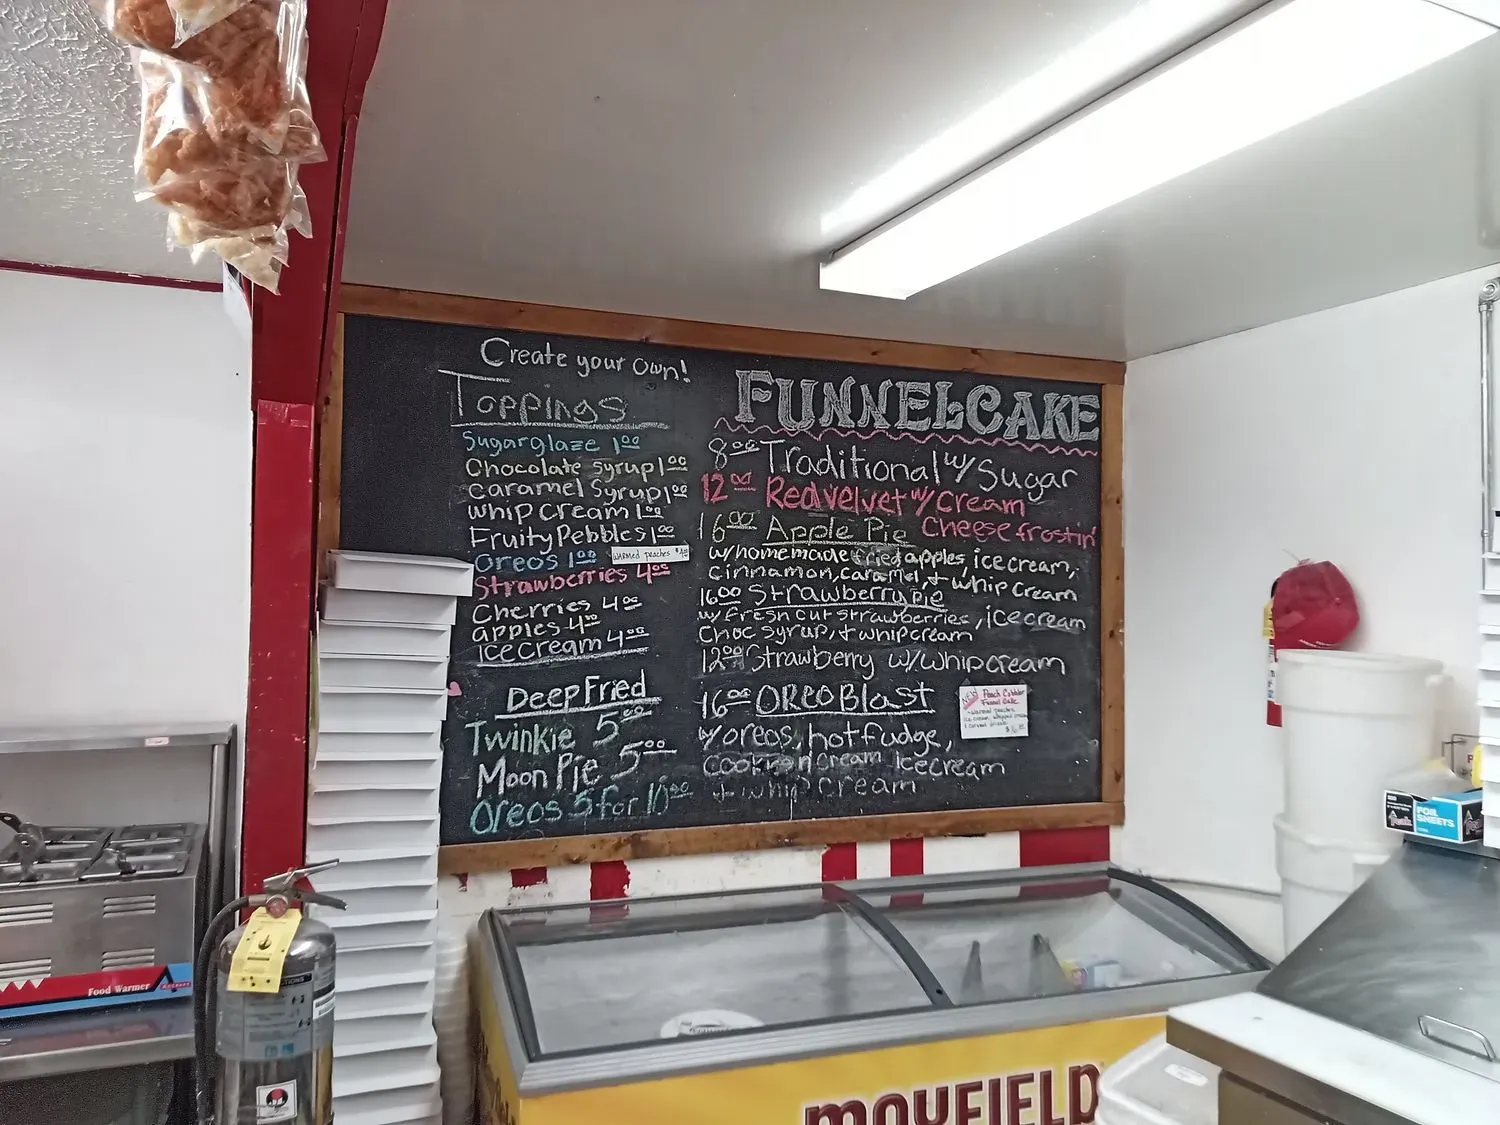 Create your own!
Toppings
Sugarglaze 1.00
Chocolate Syrup 1.00
Caramel Syrup 1.00
whip cream 1.00
Fruity Pebbles 1.00
Oreos 1.00
warmed peaches $4
Strawberries 4.00
Cherries 4.00
apples 4.00
Ice Cream 4.00
Deep Fried
Twinkie 5.00
Moon Pie 5.00
Oreos 5 for 10.00
FUNNEL CAKE
8.00 Traditional w/ Sugar
12.00 Red velvet w/ Cream
Cheese frostin'
16.00 Apple Pie
w/ homemade fried apples, ice cream,
Cinnamon, caramel, + whip cream
16.00 Strawberry Pie
w/ fresh cut strawberries, ice cream
Choc syrup, + whip cream
12.00 Strawberry w/ whip cream
16.00 OREO Blast
w/ oreos, hot fudge,
cream Icecream
+ whip cream
NEW
Peach Cobbler
Funnel Cake
warmed peaches
ice cream, whipped cream
Food Warmer
FOIL
SHEETS
MAYFIELD